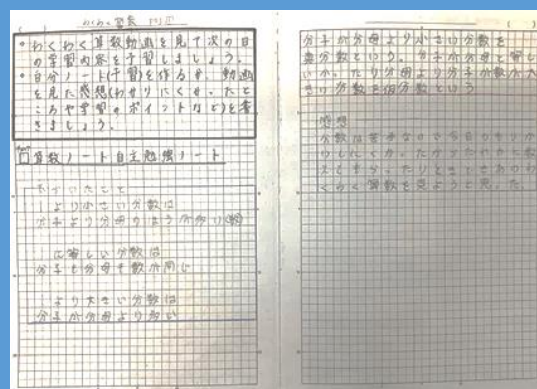 わくわく算数
・わくわく算数動画を見て次の日
の学習内容を予習しましょう。
・自分ノート(予習)を作るか、動画
を見た感想(わかりにくかったと
ころや学習のポイントなど)を書
きましょう。
算数ノート自主勉強ノート
気づいたこと
1より小さい分数は
分子より分母のほうが多い
1に等しい分数は
分子も分母も数が同じ
1より大きい分数は
分子が分母より多い
分子が分母より小さい分数を
真分数という。分子が分母と等し
いか、たり分母より分子が数が大
きい分数を仮分数という
感想
分数は苦手なので今日の
くわく算数を見ようと思った